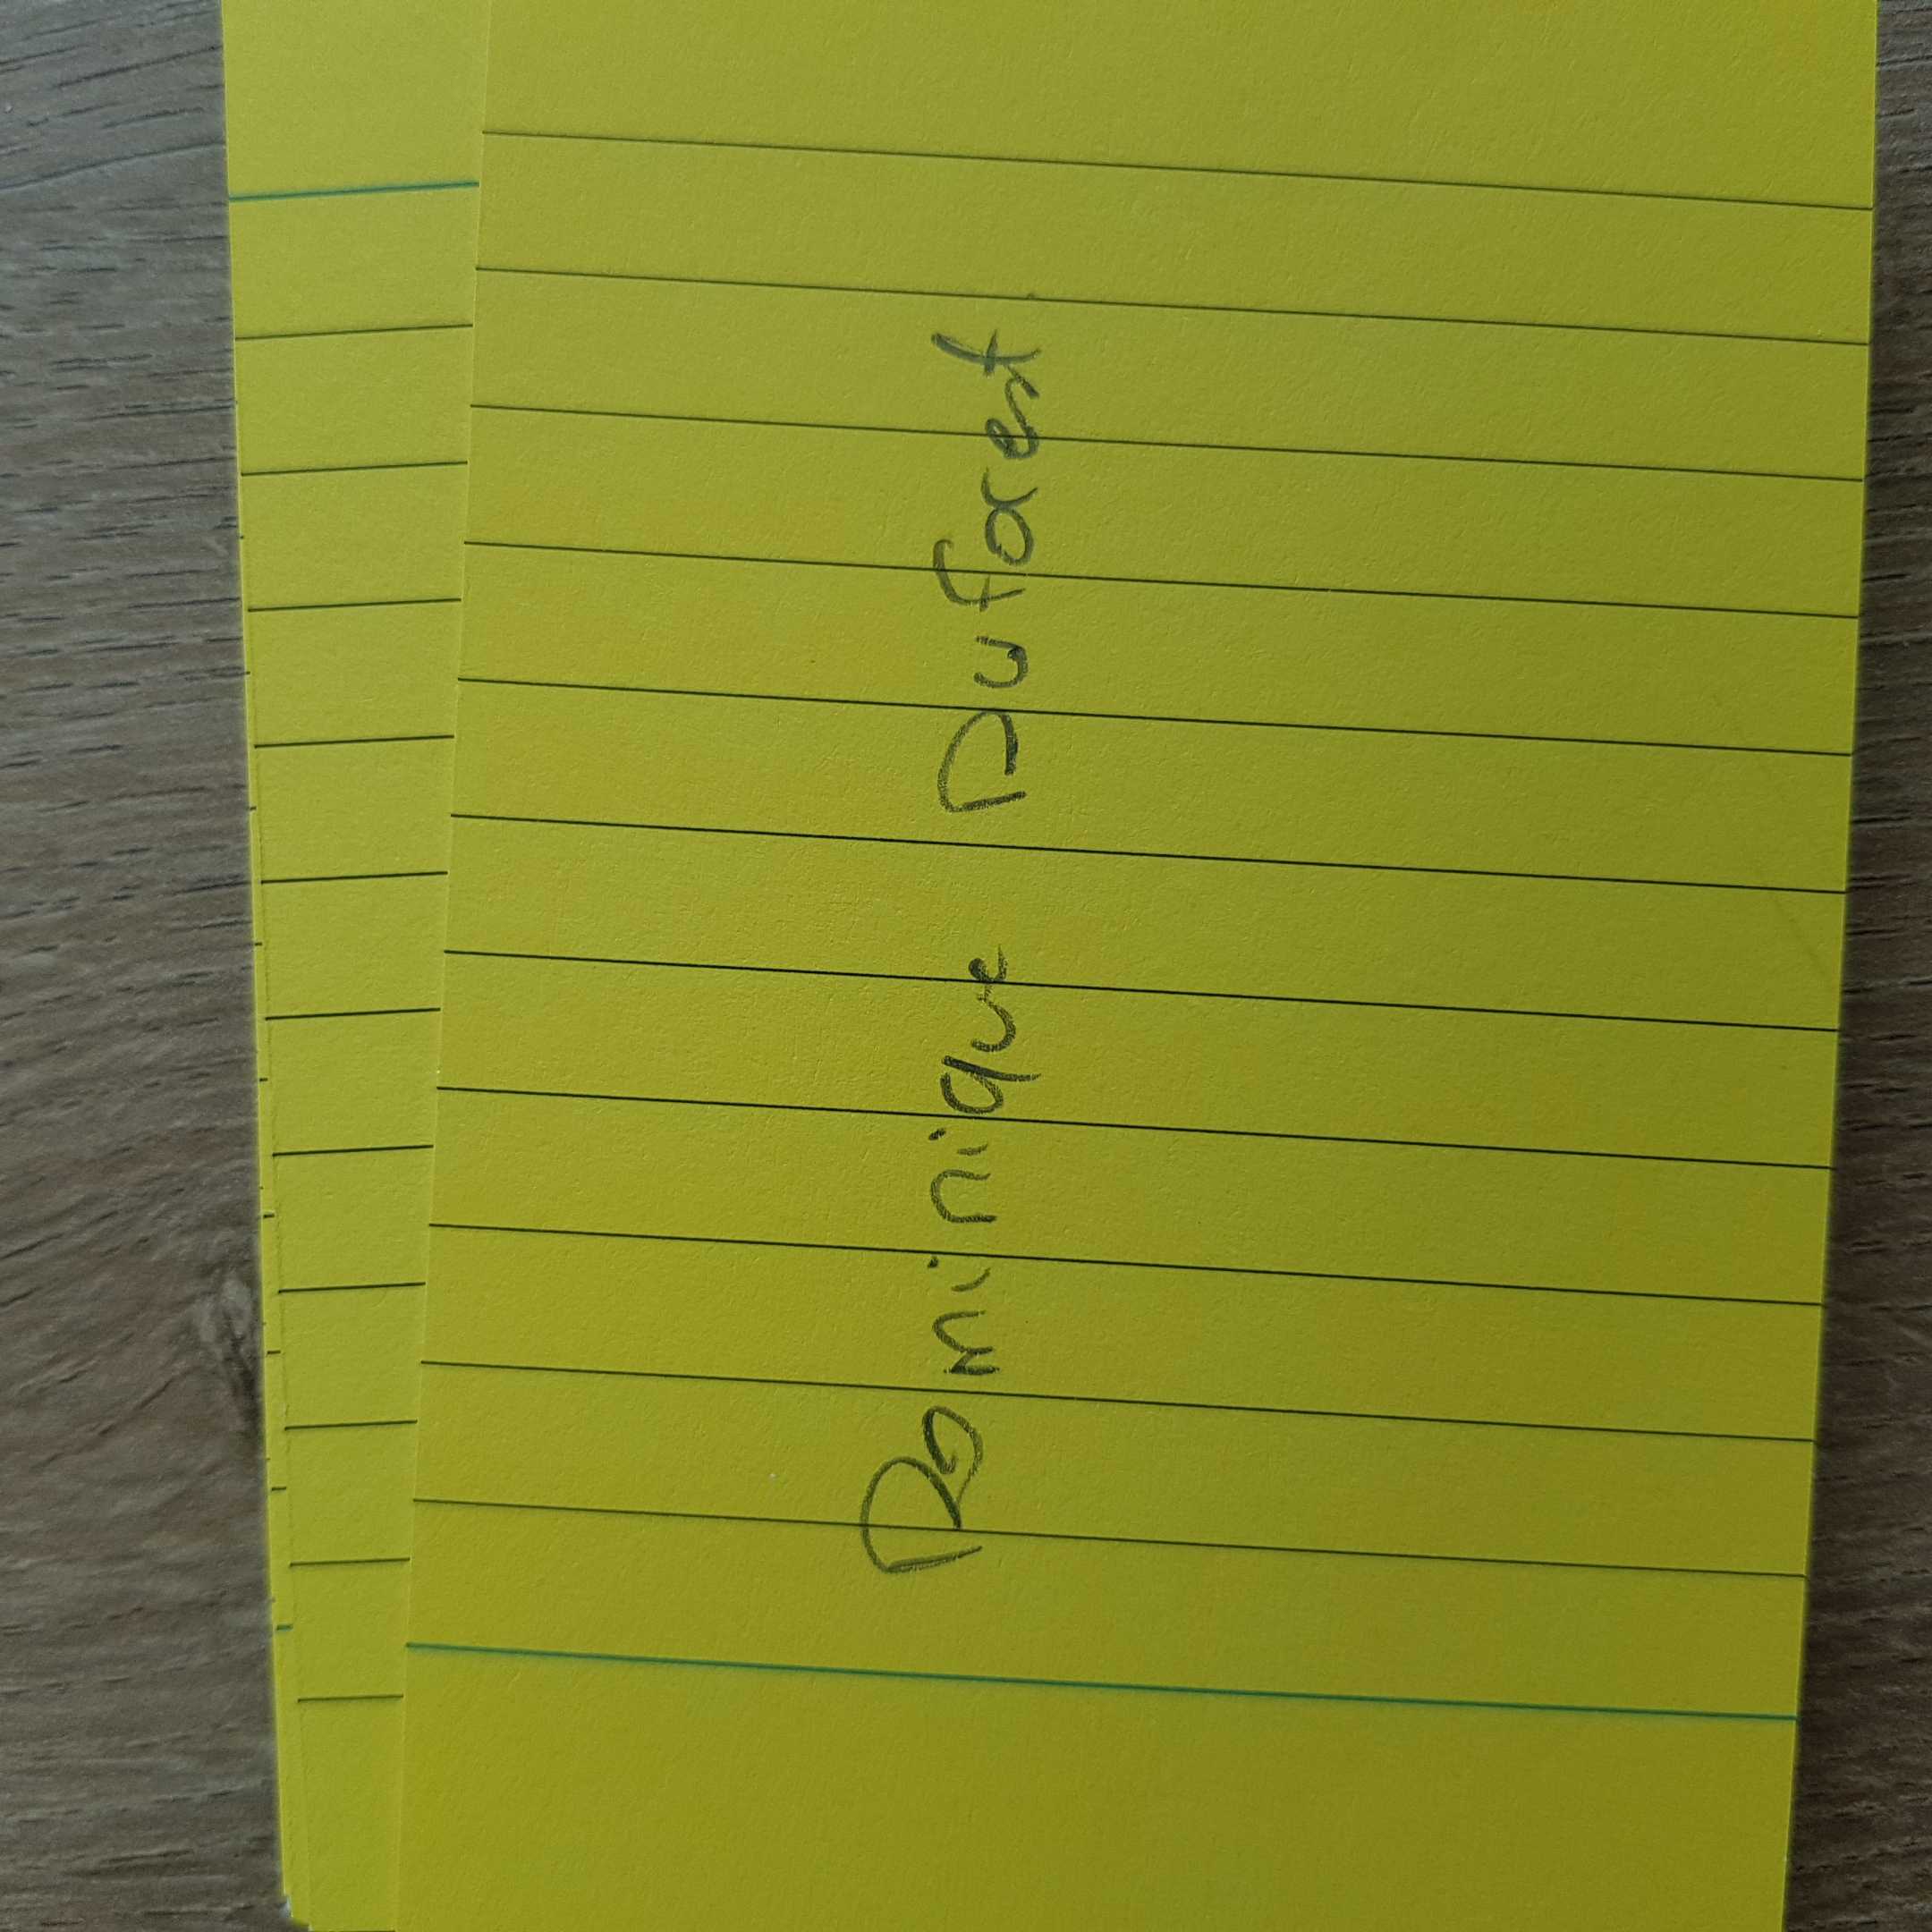 Dominique Duforest